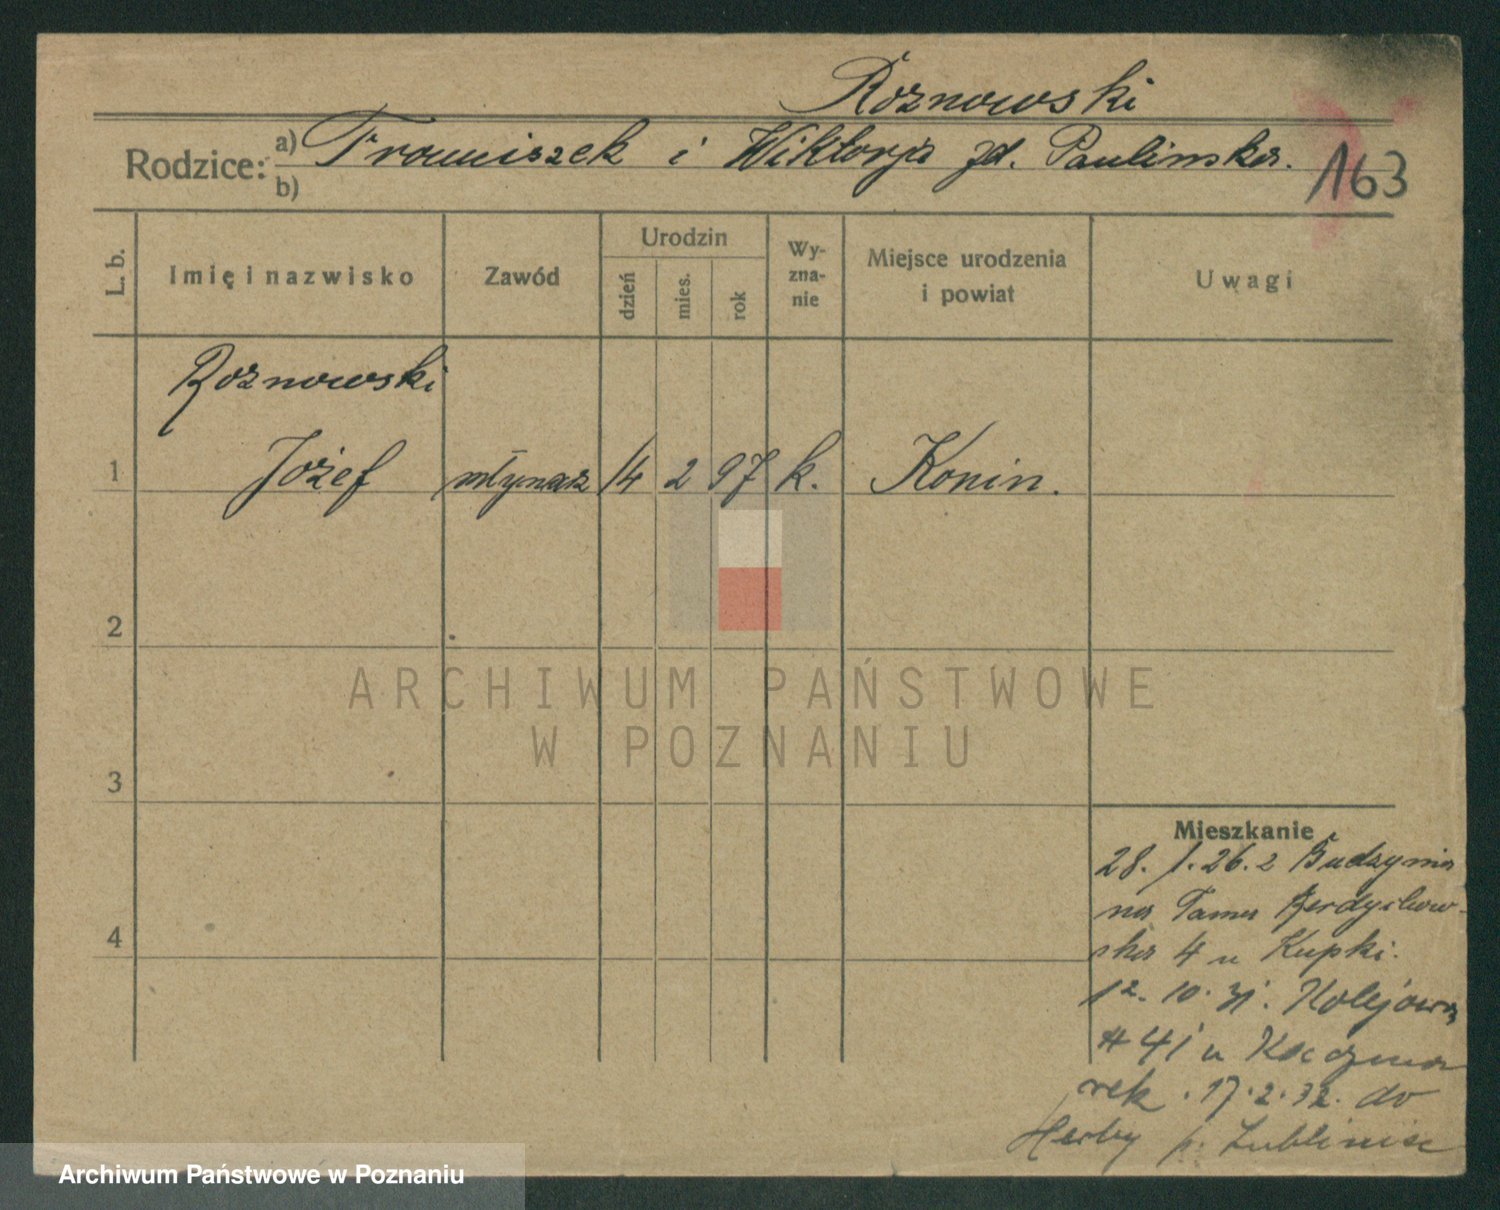 Roznowski
Rodzice: a) Franciszek i Wiktorja zd. Paulinska.
b)
163
L. b.
Imię i nazwisko
Zawód
Urodzin
dzień
mies.
rok
Wy-
zna-
nie
Miejsce urodzenia
i powiat
Uwagi
Roznowski
1 Józef młynarz 14 2 97 k. Konin.
2
3
4
Mieszkanie
28. 1. 26. z Budzynia
na Tama Berdychow-
ska 4 u Kupki.
12. 10. 31. Kolejowa
41 u Kaczma
rek. 17. 2. 32. do
Herby p. Lubliniec
ARCHIWUM PAŃSTWOWE
W POZNANIU
Archiwum Państwowe w Poznaniu